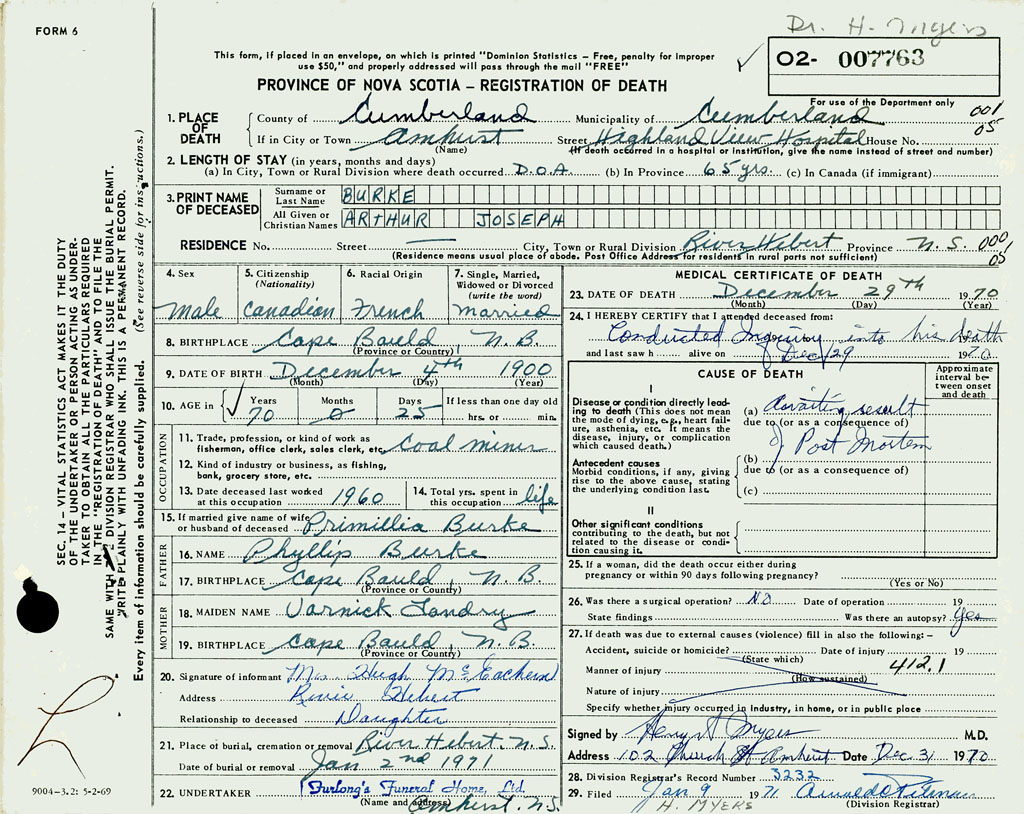 FORM 6
Dr. H. Myers
This form, if placed in an envelope, on which is printed "Dominion Statistics – Free, penalty for improper
use $50," and properly addressed will pass through the mail "FREE"
02- 007763
PROVINCE OF NOVA SCOTIA – REGISTRATION OF DEATH
For use of the Department only
1. PLACE OF DEATH
County of Cumberland Municipality of Cumberland 001
05
If in City or Town Amhurst Street Highland View Hospital House No.
(Name) (If death occurred in a hospital or institution, give the name instead of street and number)
2. LENGTH OF STAY (in years, months and days)
(a) In City, Town or Rural Division where death occurred D.O.A. (b) In Province 65 yrs. (c) In Canada (if immigrant)
3. PRINT NAME OF DECEASED
Surname or Last Name BURKE
All Given or Christian Names ARTHUR JOSEPH
RESIDENCE No. Street — City, Town or Rural Division River Hebert Province N.S. 000
05
(Residence means usual place of abode. Post Office Address for residents in rural parts not sufficient)
4. Sex
Male
5. Citizenship (Nationality)
Canadian
6. Racial Origin
French
7. Single, Married, Widowed or Divorced (write the word)
married
8. BIRTHPLACE Cape Bauld N.B.
(Province or Country)
9. DATE OF BIRTH December 4th 1900
(Month) (Day) (Year)
10. AGE in Years Months Days If less than one day old
70 0 25 hrs. or min.
OCCUPATION
11. Trade, profession, or kind of work as
fisherman, office clerk, sales clerk, etc. Coal miner
12. Kind of industry or business, as fishing,
bank, grocery store, etc.
13. Date deceased last worked at this occupation 1960
14. Total yrs. spent in this occupation life
15. If married give name of wife or husband of deceased Primillia Burke
FATHER
16. NAME Phyllip Burke
17. BIRTHPLACE Cape Bauld, N.B.
(Province or Country)
MOTHER
18. MAIDEN NAME Varnick Landry
19. BIRTHPLACE Cape Bauld N.B.
(Province or Country)
20. Signature of informant Mrs Hugh McEachern
Address River Hebert
Relationship to deceased Daughter
21. Place of burial, cremation or removal River Hebert, N.S.
Date of burial or removal Jan 2nd 1971
22. UNDERTAKER Furlong's Funeral Home, Ltd.
(Name and address) Amhurst, N.S.
MEDICAL CERTIFICATE OF DEATH
23. DATE OF DEATH December 29th 1970
(Month) (Day) (Year)
24. I HEREBY CERTIFY that I attended deceased from:
Conducted Inquiry into his death
and last saw h alive on Dec 29 1970
CAUSE OF DEATH
Approximate interval between onset and death
I
Disease or condition directly leading to death (This does not mean
the mode of dying, e.g., heart failure, asthenia, etc. It means the
disease, injury, or complication
which caused death.)
(a) Awaiting result
due to (or as a consequence of)
of Post Mortem
Antecedent causes
Morbid conditions, if any, giving
rise to the above cause, stating
the underlying condition last.
(b)
due to (or as a consequence of)
(c)
II
Other significant conditions
contributing to the death, but not
related to the disease or condition causing it.
25. If a woman, did the death occur either during
pregnancy or within 90 days following pregnancy?
(Yes or No)
26. Was there a surgical operation? No Date of operation 19
State findings Was there an autopsy? Yes
27. If death was due to external causes (violence) fill in also the following: –
Accident, suicide or homicide? Date of injury 19
(State which)
Manner of injury 412.1
(How sustained)
Nature of injury
Specify whether injury occurred in industry, in home, or in public place
Signed by Henry Myers M.D.
Address 102 Church St Amhurst Date Dec 31 1970
28. Division Registrar's Record Number 3232
29. Filed Jan 9 1971
H. MYERS (Division Registrar)
SEC. 14 – VITAL STATISTICS ACT MAKES IT THE DUTY
OF THE UNDERTAKER OR PERSON ACTING AS UNDER-
TAKER TO OBTAIN ALL THE PARTICULARS REQUIRED
IN THE "REGISTRATION OF DEATH" AND TO FILE THE
SAME WITH DIVISION REGISTRAR WHO SHALL ISSUE THE BURIAL PERMIT.
WRITE PLAINLY WITH UNFADING INK. THIS IS A PERMANENT RECORD.
Every item of information should be carefully supplied. (See reverse side for instructions.)
9004-3.2: 5-2-69